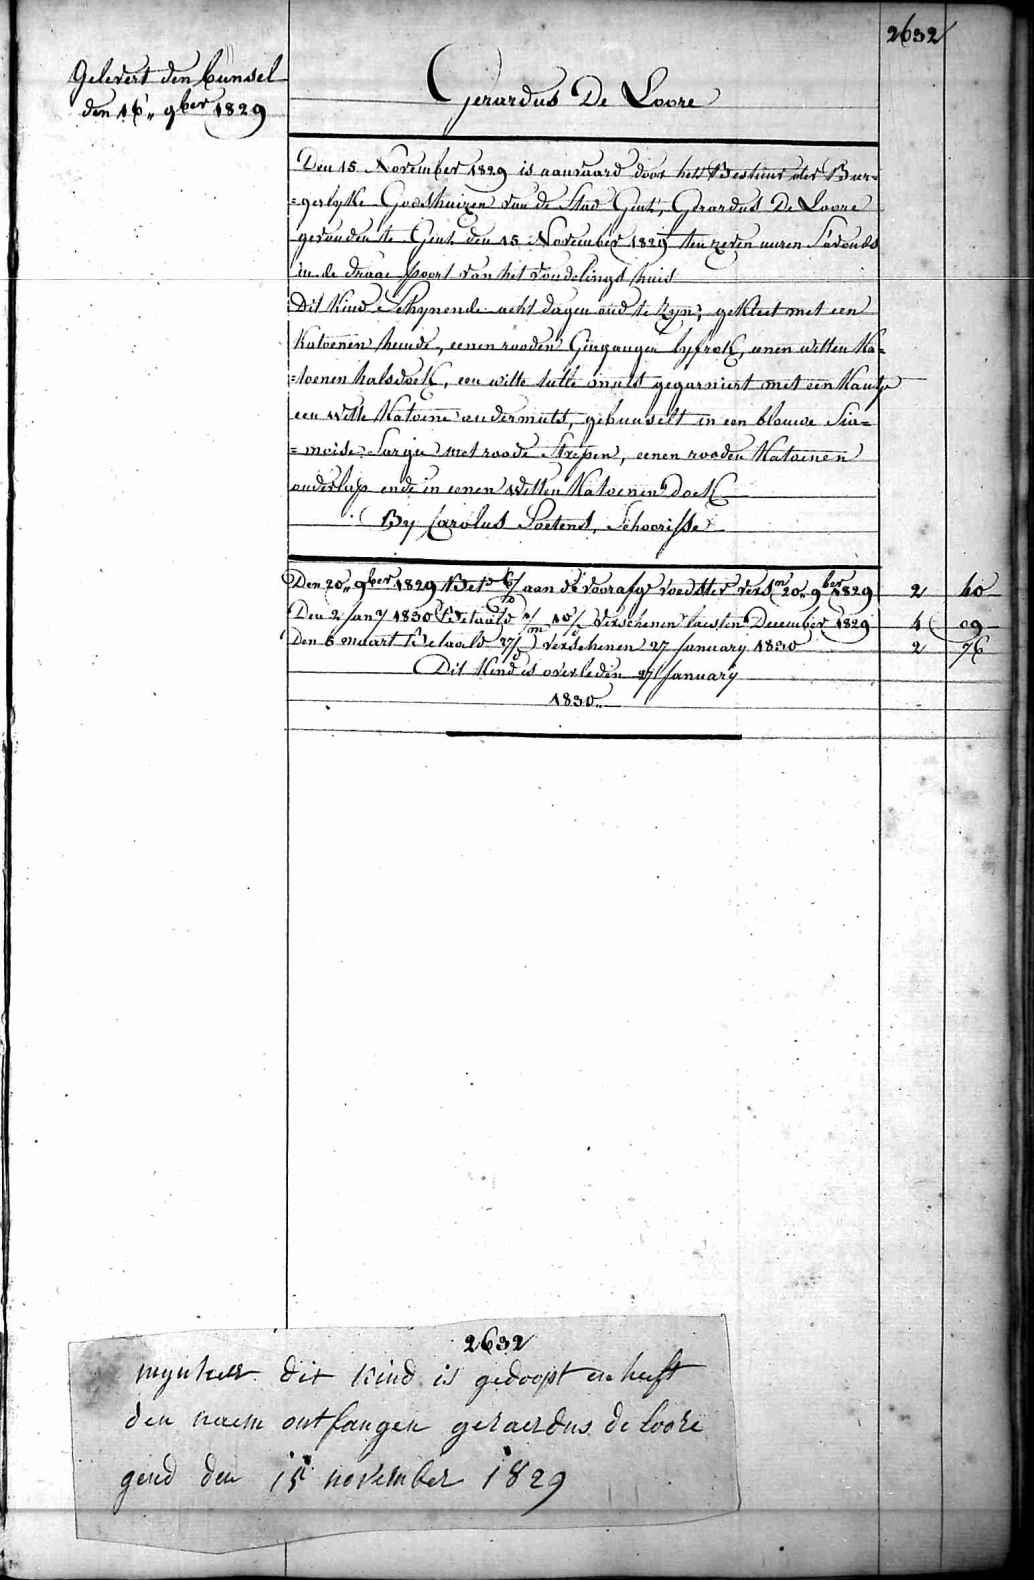 2632
Gelevert den bunsel
den 16,, 9ber 1829
Gerardus De Loore
Den 15 November 1829 is aanvaard door het Bestuur der Bur=
=gerlyke Godshuizen van de Stad Gent, Gerardus De Loore
gevonden te Gent den 15 November 1829 ten zeven uuren S'avonds
in de draae poort van het vondelings huis
Dit Kind Schynende acht dagen oud te zyn, gekleet met een
Katoenen hemde, eenen rooden Gingangen lyfrok, eenen witten Ka=
=toenen halsdoek, een witte tulle muts gegarniert met een Kantje
een witte Katoene ondermuts, gebunselt in een blouwe Sia=
=moise Sargie met roode Strepen, eenen rooden Katoenen
onderlap ende in eenen witten Katoenen doek
By Carolus Soetens, Schoorisse
Den 20,, 9ber 1829 Bet. aan de voorafg voedster vers.n 20,, 9ber 1829 2 40
Den 2 Jan.y 1830 Betaald 1/m 10/d Verschenen laesten December 1829 4 09
Den 6 maart Betaald 27/d verschenen 27 January 1830 2 76
Dit Kind is overleden 27 January
1830,,
2632
mynheer dit kind is gedoopt en heeft
den naem ontfangen geraerdus de loore
gend den 15 november 1829